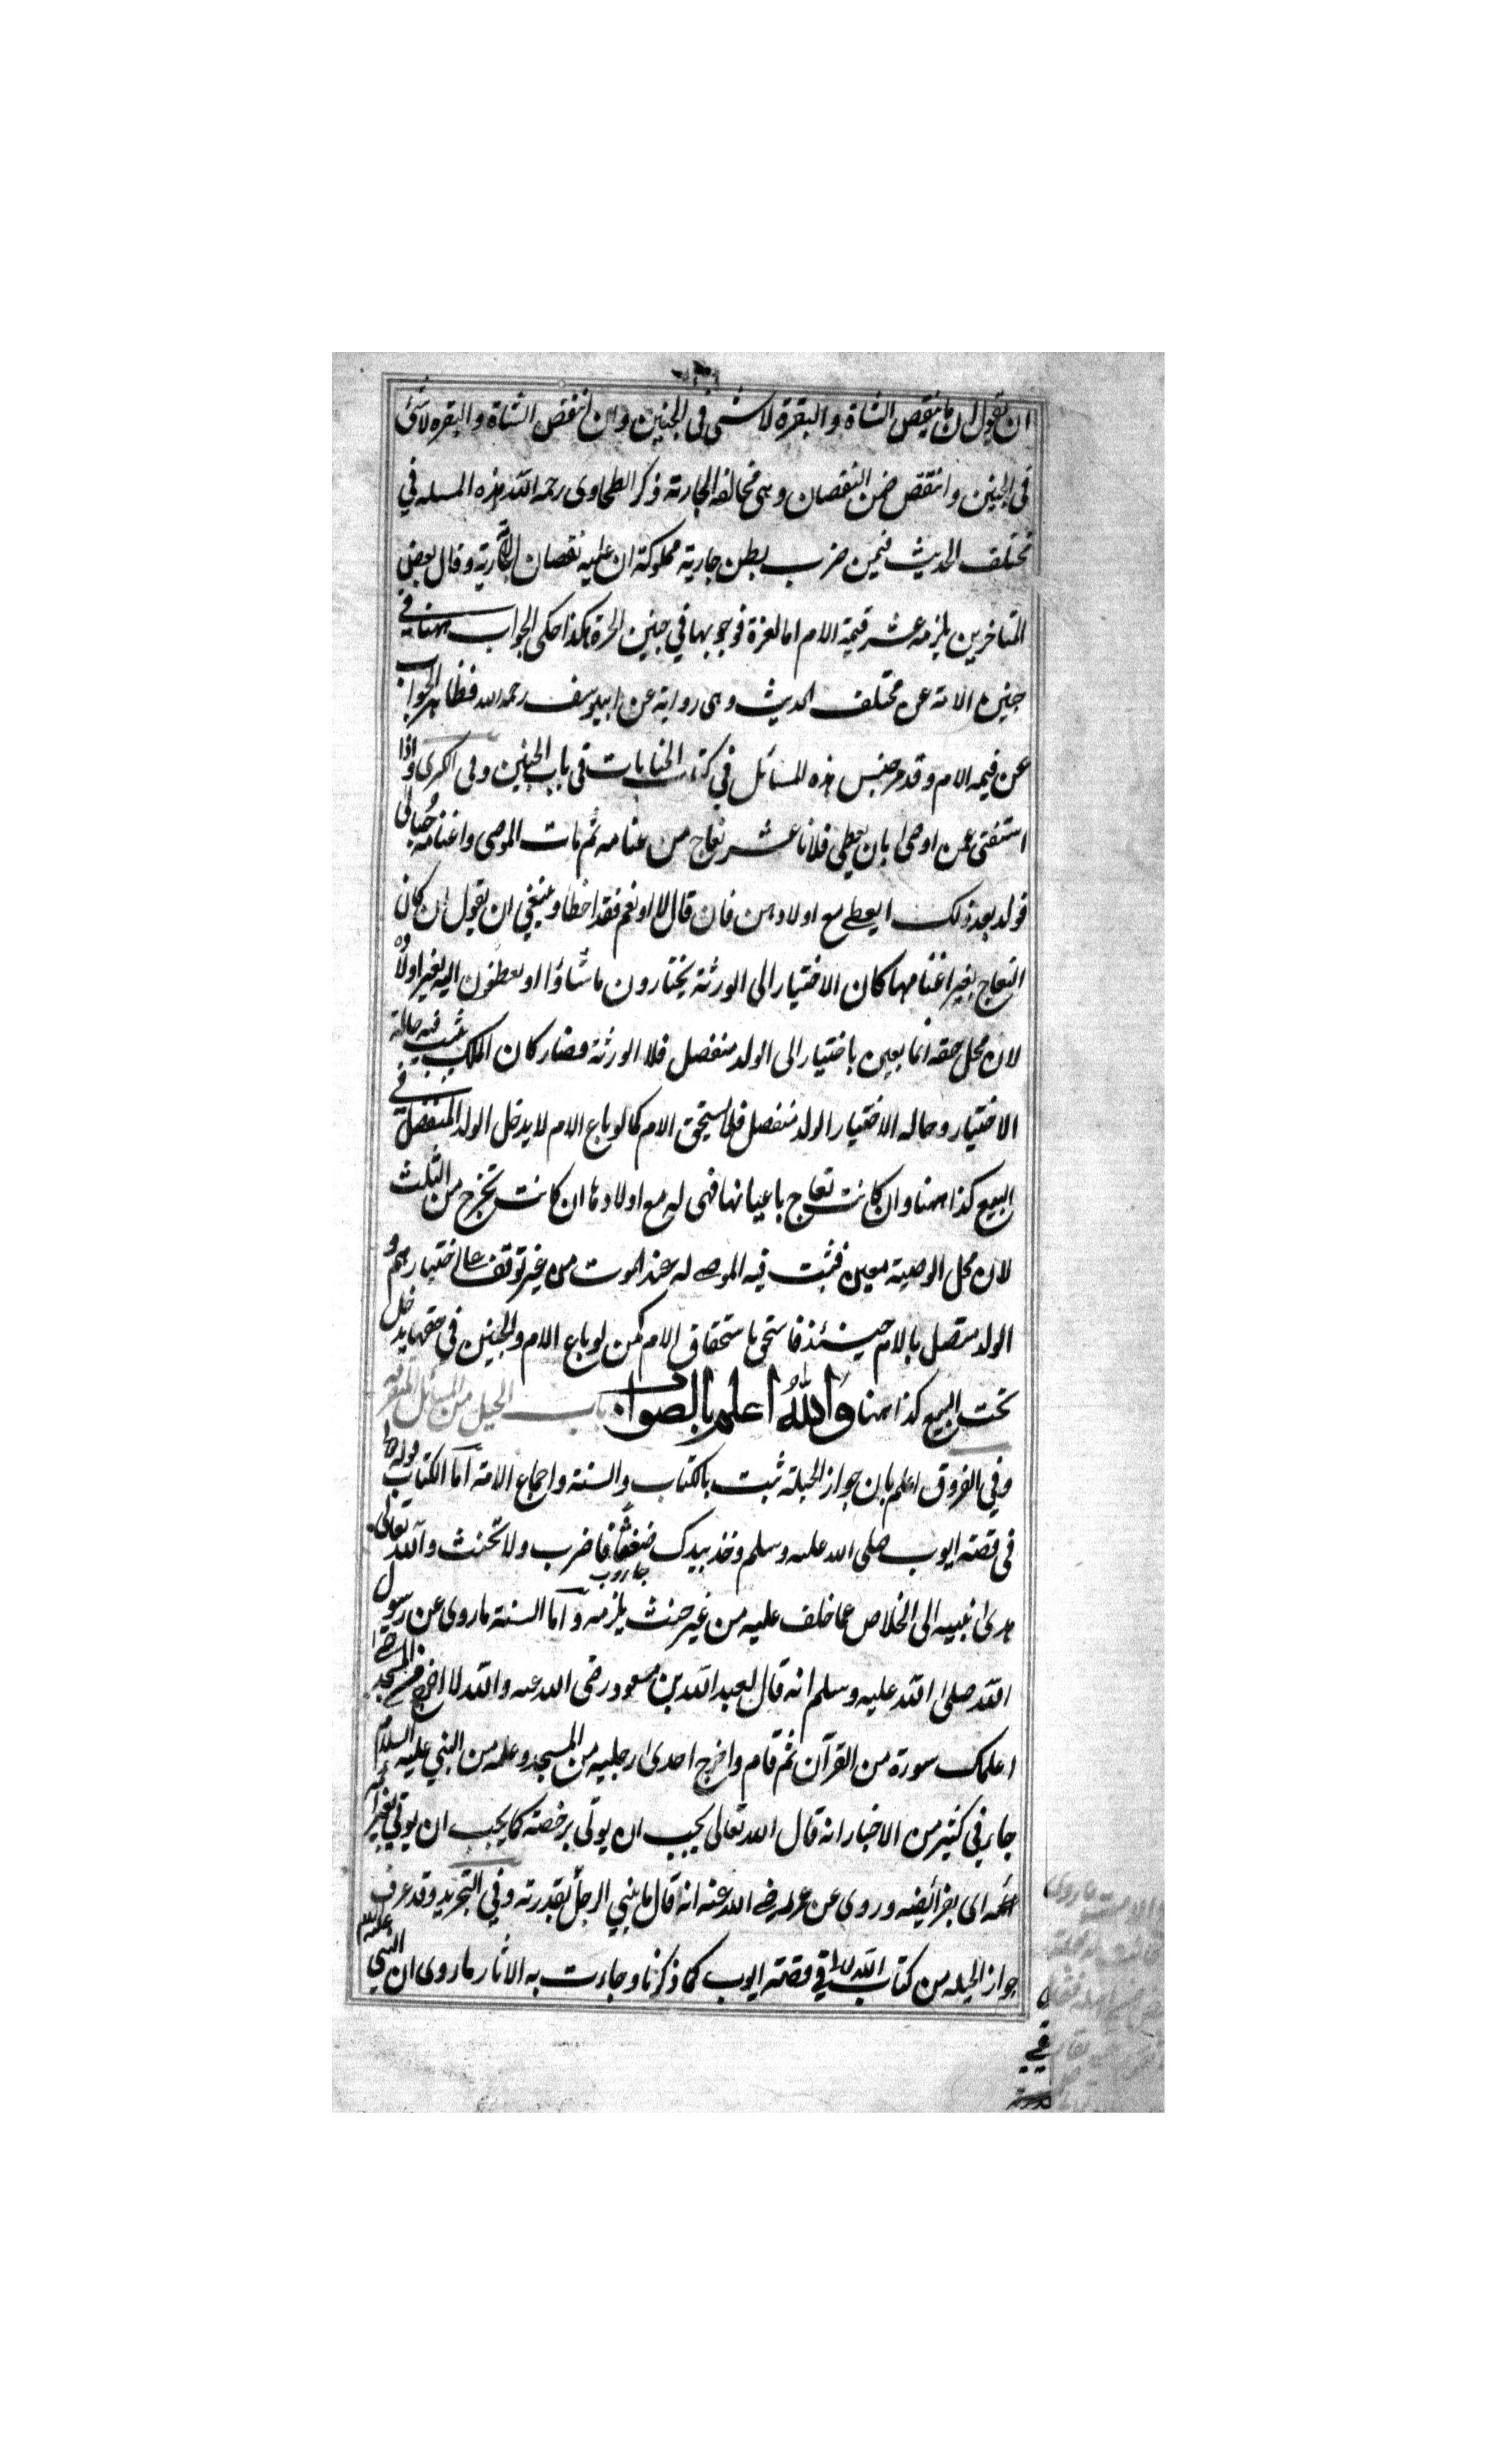 ان تقول ان ما ينقص الشاة والبقرة لا شئ فى الجنين وان انتقص الشاة والبقره لا شئ
فى الجنين وانتقص ضمن النقصان وهى مخالفه الجاريته ذكر الطحاوى رحمه الله هذه المسله فى
مختلف الحديث فيمن ضرب بطن جاريته مملوكة ان عليه نقصان الجاريته وقال بعض
المتاخرين يلزمه عشر قيمة الام اما لغرة فوجوبها فى جنين الحرة هكذا حكى الجواب ههنا فى
جنين الامة عن مختلف الحديث وهى رواية عن ابيوسف رحمه الله فظاهر الجواب
عن قيمه الام وقد مر جنس هذه المسائل فى كتاب الجنايات فى باب الجنين وفى الكبرى واذا
استفتى عمن اوصى بان يعطى فلانا عشر نعاج من غنامه ثم مات الموصى واغنامه حبالى
فولد بعد ذلك ايعطى مع اولادهن فان قال لا او نعم فقد اخطا وينبغى ان يقول ان كان
النعاج بغير اغنامها كان الاختيار الى الورثة يختارون ما شاؤا او يعطون اليه بغير اولاده
لان محل حقه انما يعين باختيار الى الولد منفصل فلا الورثة فصار كان الملك يثبت فيه حالة
الاختيار وحاله الاختيار الولد منفصل فلا يستحق الام كما لو باع الام لا يدخل الولد المنفصل فى
البيع كذا ههنا وان كانت نعاج باعيانها فهى له مع اولادها ان كانت تخرج من الثلث
لان محل الوصية معين فثبت فيه الموصى له عند الموت من غير توقف على اختيارهم و
الولد متصل بالام حينئذ فاستحق باستحقاق الام كمن لو باع الام والجنين فى حقها يدخل
تحت البيع كذا ههنا والله اعلم بالصواب باب الحيل من المسائل المتفرقه
وفى الفروق اعلم بان جواز الحيلة ثبت بالكتاب والسنة واجماع الامة اما الكتاب قوله تعالى
فى قصته ايوب صلى الله عليه وسلم وخذ بيدك ضغثا فاضرب ولا تحنث والله تعالى
جاروب
هدى نبيه الى الخلاص عما حلف عليه من غير حنث يلزمه واما السنة ما روى عن رسول
الله صلى الله عليه وسلم انه قال لعبد الله بن مسعود رضى الله عنه والله لا اخرج من المسجد حتى
اعلمك سورة من القرآن ثم قام واخرج احدى رجليه من المسجد وعلمه من النبى عليه السلام
جاء فى كثير من الاخبار انه قال الله تعالى يحب ان يوتى برخصته كما يحب ان يوتى بعزائمه
اى بفرائضه وروى عن عمر رضى الله عنه انه قال ما بنى الرجل بقدرته وفى التجريد وقد عرف
جواز الحيله من كتاب الله تعالى فى قصة ايوب كما ذكرنا وجاءت به الاثار ما روى ان النبى عليه السلام